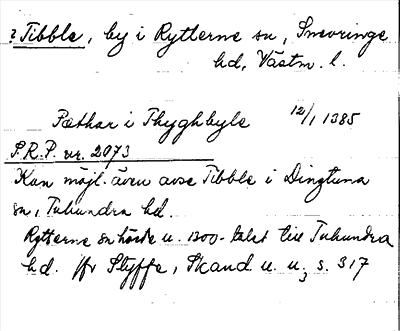 ? Tibble, by i Rytterne sn, Snevringe
hd, Västm. l.
Pæthar i Thyghbyle 12/1 1385
S.R.P. nr. 2073
Kan möjl. även avse Tibble i Dingtuna
sn, Tuhundra hd.
Rytterne sn hörde u. 1300-talet till Tuhundra
hd. jfr Styffe, Skand. u. u., s. 317